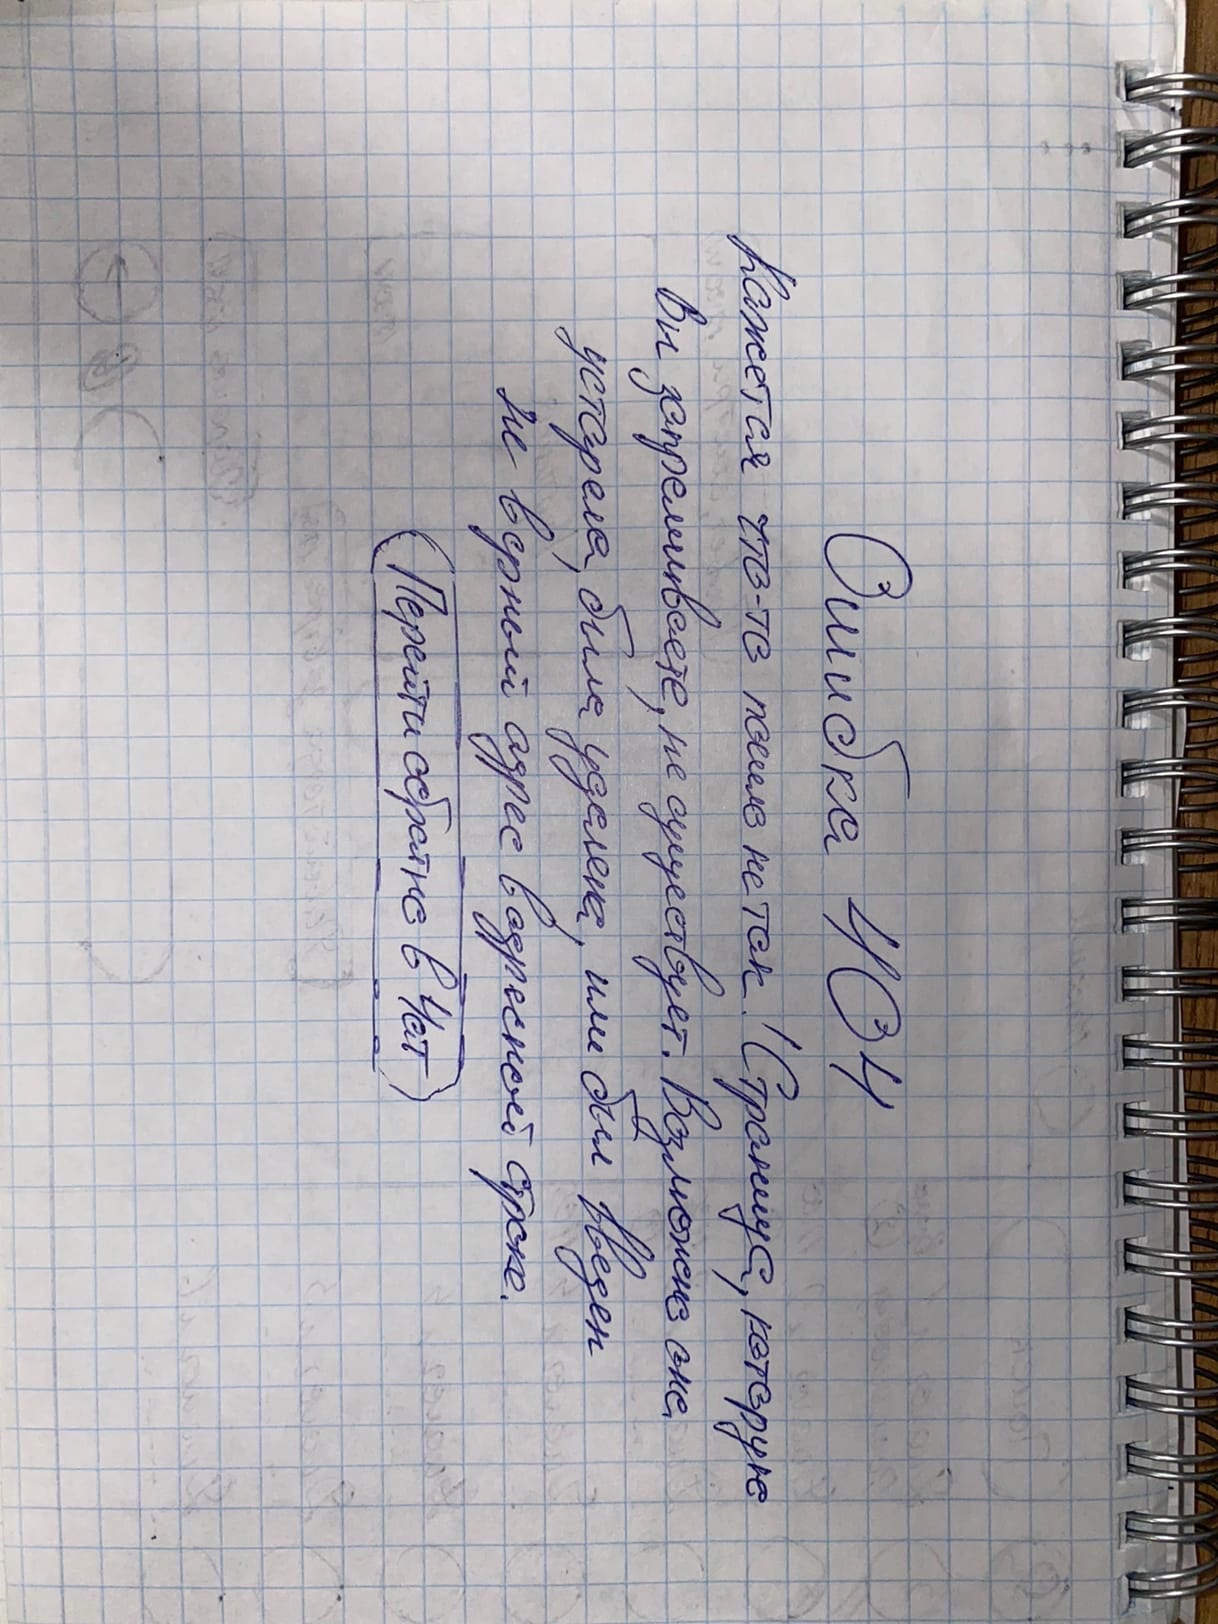 Ошибка 404
Кажется что-то пошло не так! Страница, которую
вы запрашиваете, не существует. Возможно она
устарела, была удалена, или был введен
не верный адрес в адресной строке.
Перейти обратно в чат